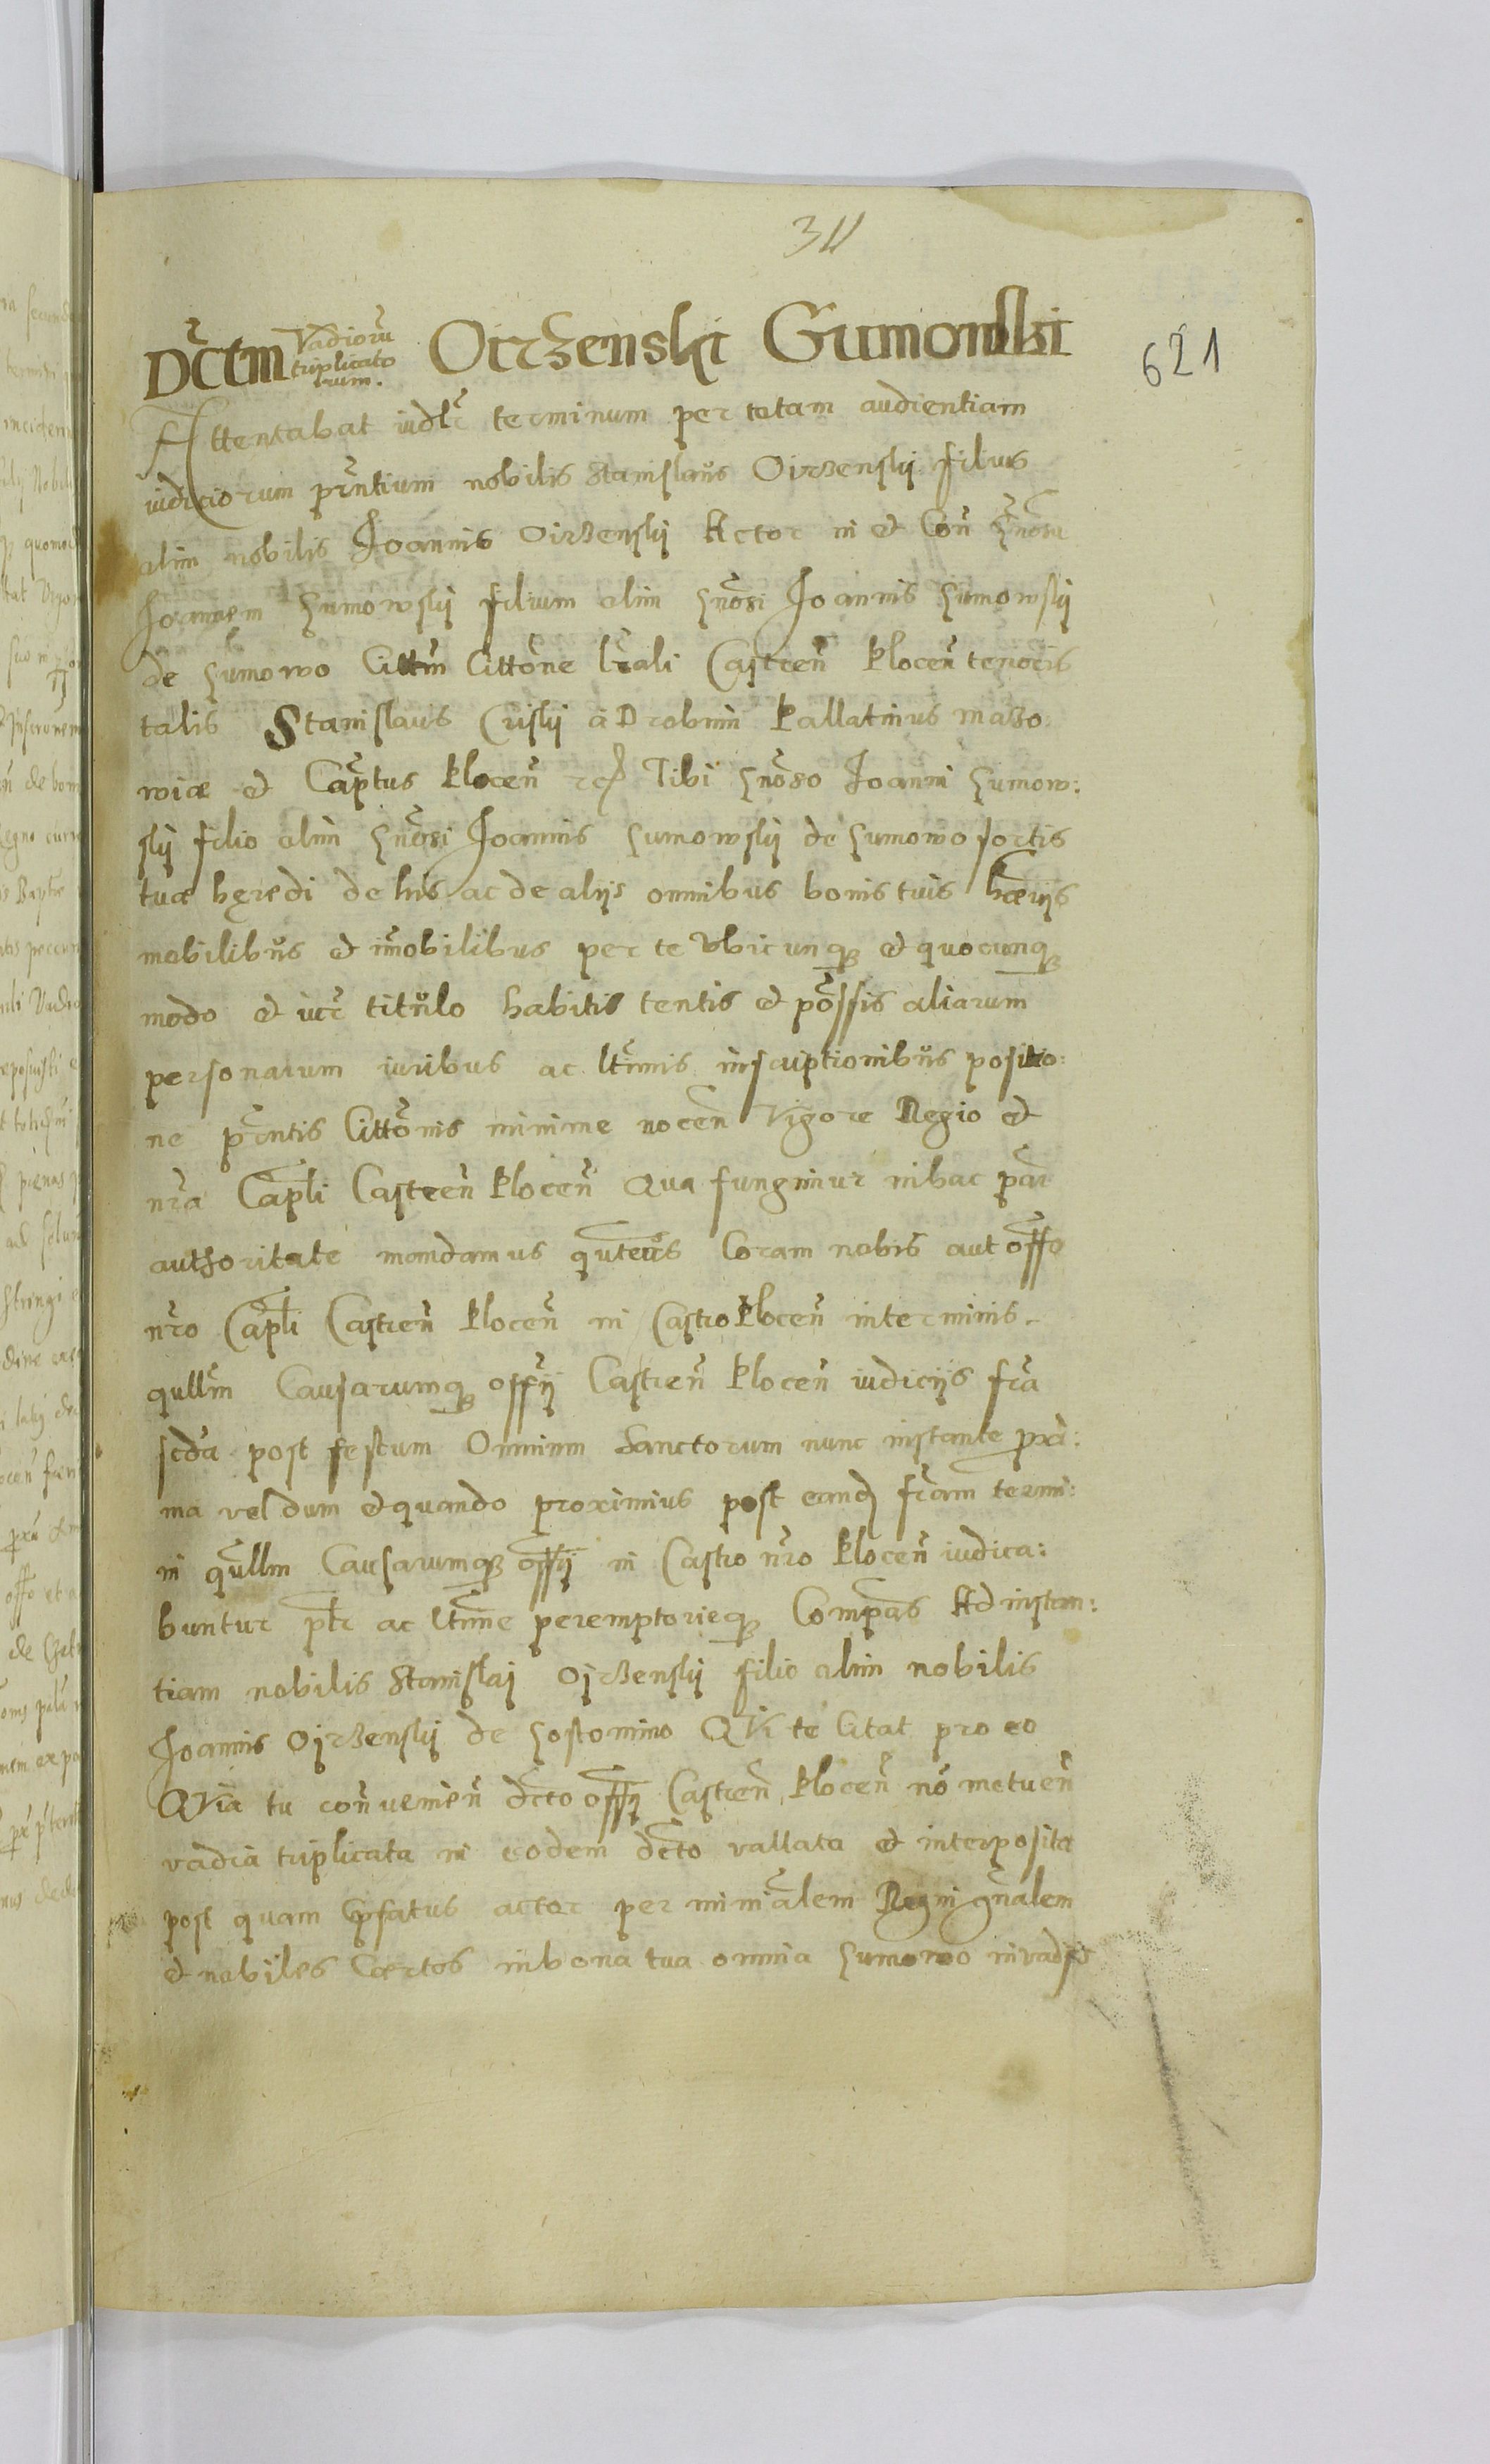 311
621
Dctm Vadioru triplicato rum. Oirzenski Gumowski
Attentabat iudlr terminum per totam audientiam
iudiciorum pr̃ntium nobilis Stanislaus Oirzenskj filius
olim nobilis Joannis Oirzenskj Actor in et Con Gnosu
Joannem Gumowskj filium olim Gnosi Joannis Gumowskj
de Gumowo Cittm Cittone lrali Castren Plocen tenoris
talis Stanislaus Criskj a Drobnin Pallatinus mazo
wiæ et Captus Plocen etc Tibi Gnoso Joanni Gumow:
skj filio olim Gnosi Joannis Gumowskj de Gumowo sortis
tuæ hęredi de his ac de alijs omnibus bonis tuis hærijs
mobilibus et imobilibus per te vbicunq et quocunq
modo et iure titulo habitis tentis et possis aliarum
personarum iuribus ac ltimis inscriptionibus positio:
ne prntis Cittonis minime nocen Vigore Regio et
nra Capli Castren Plocen Qua fungimur in hac par
authoritate mandamus qutenus Coram nobis aut offo
nro Capli Castren Plocen in Castro Plocen in terminis
qullm Causarumq offij Castren Plocen iudicijs fra
scda post festum Omnium Sanctorum nunc instante proxi:
ma vel dum et quando proximius post eand fram termi:
in qullm Causarumq offij in Castro nro Plocen iudica:
buntur ptr ac ltime peremptorieq Compas Ad instan:
tiam nobilis Stanislaj Ojrzenskj filio olim nobilis
Joannis Ojrzenskj de Gostomino Qvi te Citat pro eo
Qvia tu contravenien dcto offij Castren Plocen no metuen
vadia triplicata in eodem dcto vallata et interposita
post quam ipsatus actor per minialem Regni gnalem
et nobiles Certos in bona tua omnia Gumowo in vadio